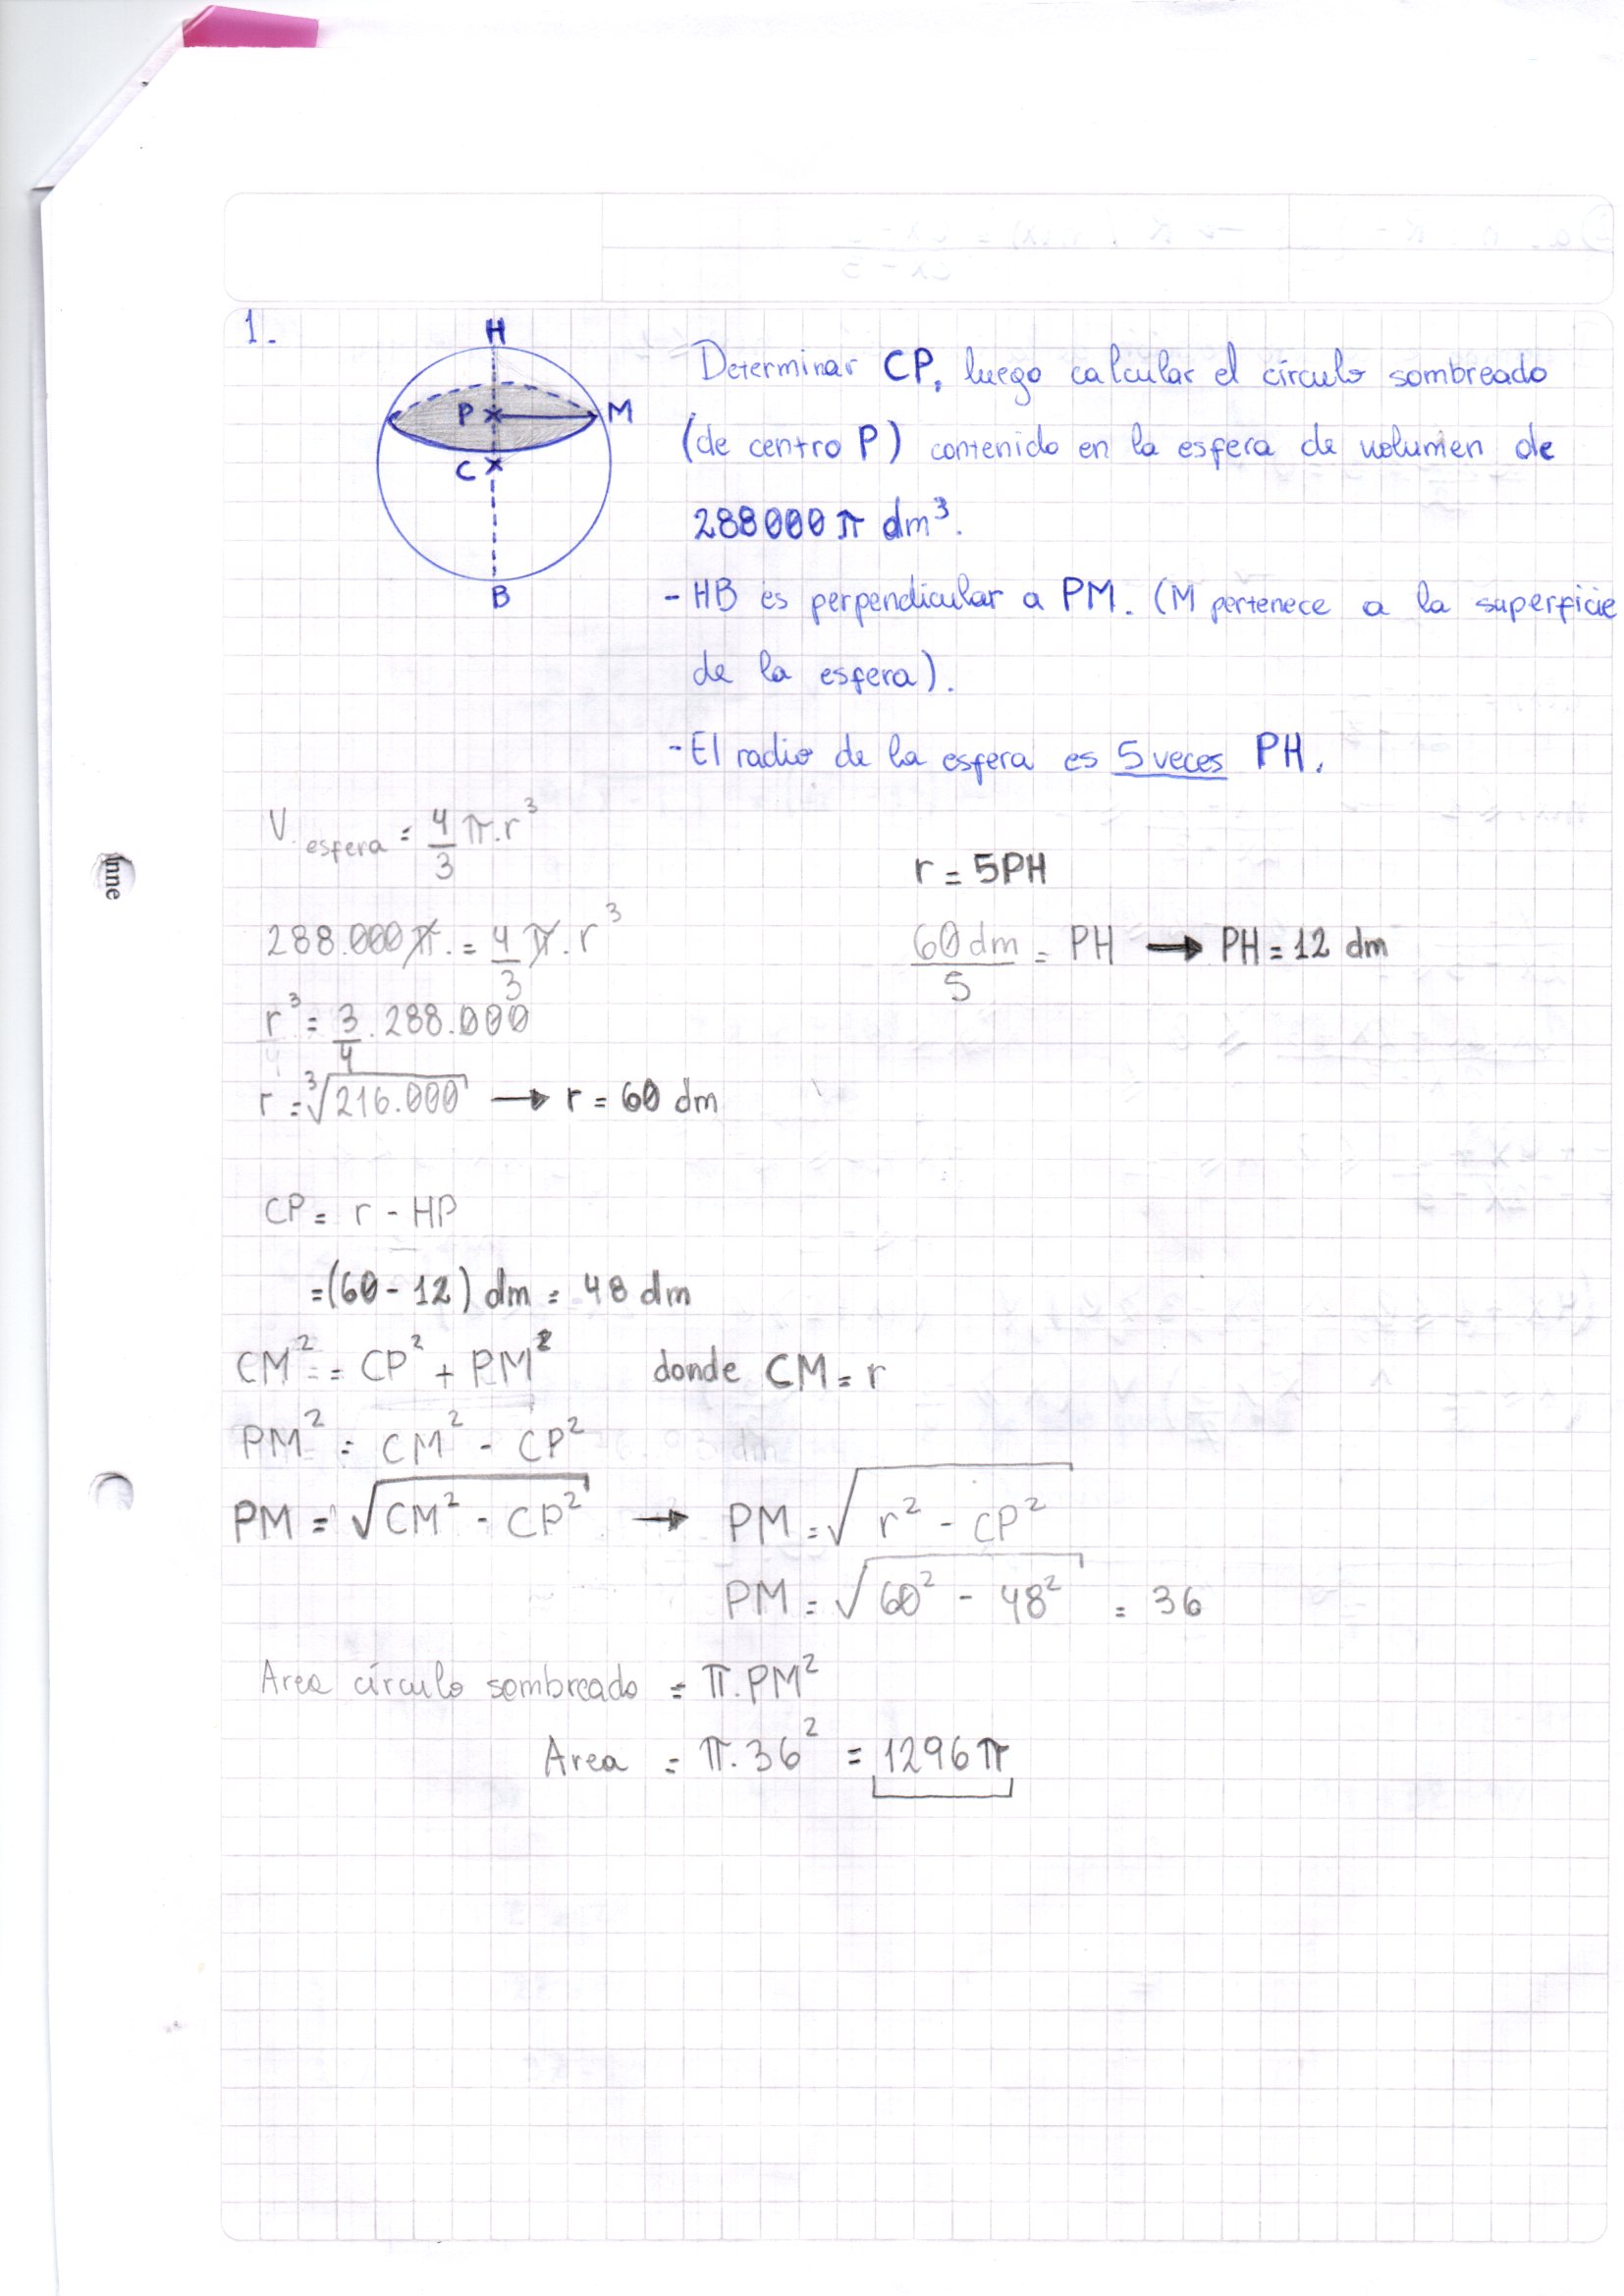 1.
H
P
M
C
B
Determinar CP, luego calcular el círculo sombreado
(de centro P) contenido en la esfera de volumen de
288000 π dm³.
- HB es perpendicular a PM. (M pertenece a la superficie
de la esfera).
- El radio de la esfera es 5 veces PH.
V. esfera = 4/3 π.r³
288.000 π. = 4/3 π.r³
r³ = 3/4 . 288.000
r = ³√216.000 → r = 60 dm
r = 5PH
60 dm/5 = PH → PH = 12 dm
CP = r - HP
= (60 - 12) dm = 48 dm
CM² = CP² + PM² donde CM = r
PM² = CM² - CP²
PM = √CM² - CP² → PM = √r² - CP²
PM = √60² - 48² = 36
Area círculo sombreado = π.PM²
Area = π.36² = 1296 π
nne